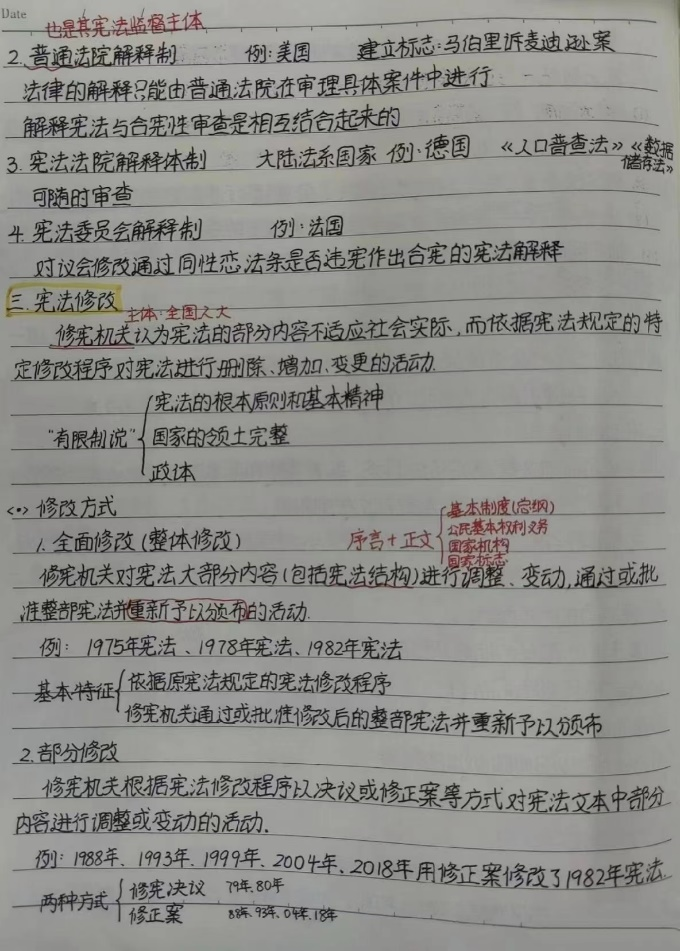 Date
也是其宪法监督主体
2. 普通法院解释制 例:美国 建立标志:马伯里诉麦迪逊案
法律的解释只能由普通法院在审理具体案件中进行
解释宪法与合宪性审查是相互结合起来的
3. 宪法法院解释体制 大陆法系国家 例:德国 《人口普查法》《数据储存法》
可随时审查
4. 宪法委员会解释制 例:法国
对议会修改通过同性恋法条是否违宪作出合宪的宪法解释
三.宪法修改 主体:全国人大
修宪机关认为宪法的部分内容不适应社会实际,而依据宪法规定的特
定修改程序对宪法进行删除、增加、变更的活动.
宪法的根本原则和基本精神
"有限制说" 国家的领土完整
政体
<一> 修改方式
1. 全面修改(整体修改) 序言+正文 基本制度(总纲)
公民基本权利义务
国家机构
国家标志
修宪机关对宪法大部分内容(包括宪法结构)进行调整、变动,通过或批
准整部宪法并重新予以颁布的活动.
例: 1975年宪法、1978年宪法、1982年宪法
基本特征 依据原宪法规定的宪法修改程序
修宪机关通过或批准修改后的整部宪法并重新予以颁布
2.部分修改
修宪机关根据宪法修改程序以决议或修正案等方式对宪法文本中部分
内容进行调整或变动的活动.
例: 1988年、1993年、1999年、2004年、2018年用修正案修改了1982年宪法.
两种方式 修宪决议 79年.80年
修正案 88年.93年.04年.18年